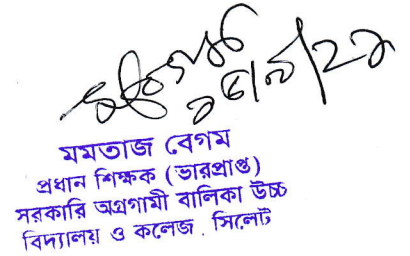 মমতাজ বেগম
প্রধান শিক্ষক (ভারপ্রাপ্ত)
সরকারি অগ্রগামী বালিকা উচ্চ
বিদ্যালয় ও কলেজ, সিলেট